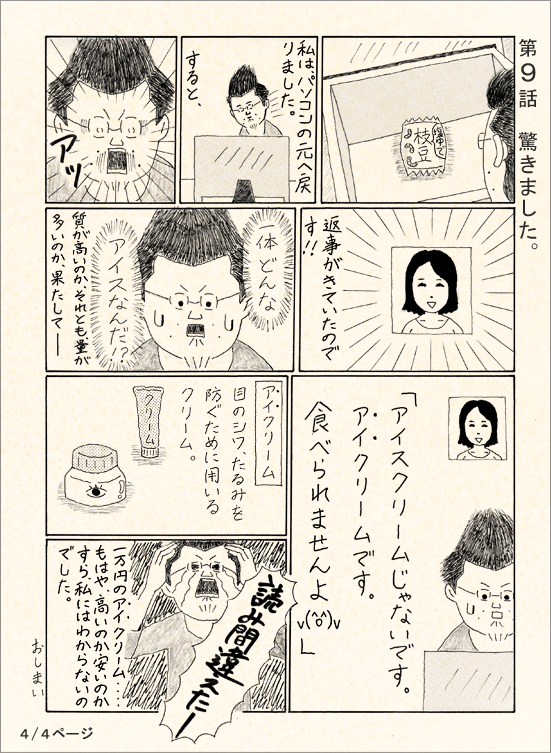 第9話 驚きました。
塩ゆで
枝豆
私は、パソコンの元へ戻
りました。
すると、
アッ
返事がきていたので
す!!
体どんな
アイスなんだ!?
質が高いのか、それとも量が
多いのか、果たして――
「アイスクリームじゃないです。
アイクリームです。
食べられませんよ
v(^o^)v」
アイクリーム
目のシワ、たるみを
防ぐために用いる
クリーム。
クリーム
読み間違えたー
一万円のアイクリーム・・・
もはや、高いのか安いのか
すら、私にはわからないの
でした。
おしまい
4/4ページ